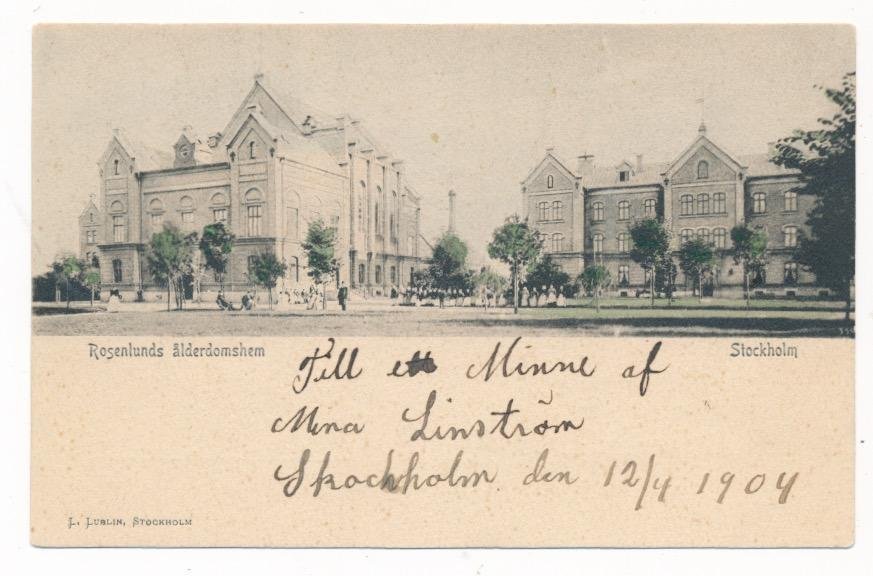 Rosenlunds ålderdomshem
Stockholm
Till ett Minne af
Mina Linström
Skockholm den 12/4 1904
L. LUBLIN, STOCKHOLM